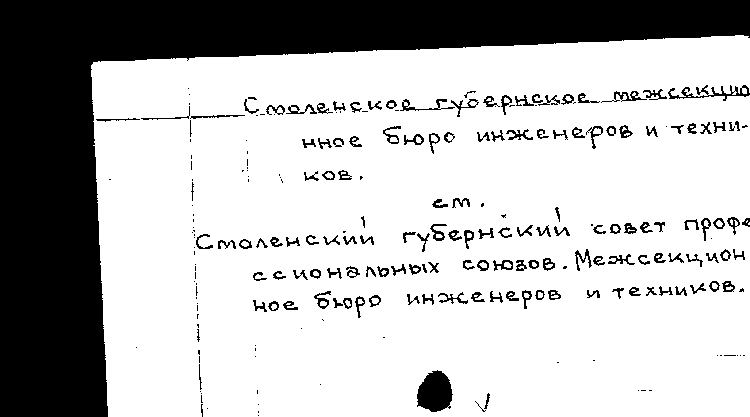 Смоленское губернское межсекцио
нное бюро инженеров и техни-
ков.
см.
Смоленский губернский совет профе
ссиональных союзов. Межсекцион
ное бюро инженеров и техников.